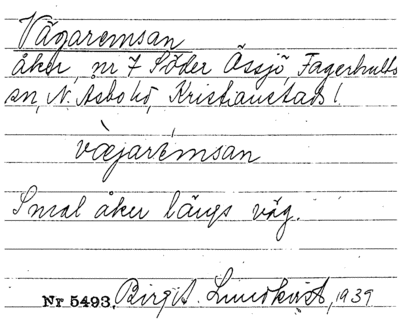 Vägaremsan
åker, nr 7 Söder Össjö, Fagerhults
sn, N. Åsbo hd, Kristianstads l
vägarémsan
Smal åker längs väg.
Nr 5493, Birgit Lundkvist, 1939